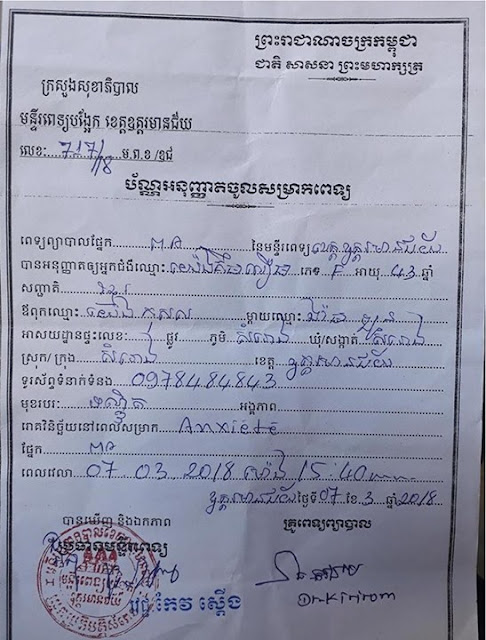 ព្រះរាជាណាចក្រកម្ពុជា
ជាតិ សាសនា ព្រះមហាក្សត្រ
ក្រសួងសុខាភិបាល
មន្ទីរពេទ្យបង្អែក ខេត្តឧត្តរមានជ័យ
លេខ:....717/18 ម.ព.ខ /ឧជ
ប័ណ្ណអនុញ្ញាតចូលសម្រាកពេទ្យ
ពេទ្យព្យាបាលផ្នែក MA នៃមន្ទីរពេទ្យ ខេត្តឧត្តរមានជ័យ
បានអនុញ្ញាតឲ្យអ្នកជំងឺឈ្មោះ: ភេទ F អាយុ 43 ឆ្នាំ
សញ្ជាតិ ខ្មែរ
ឪពុកឈ្មោះ: ម្តាយឈ្មោះ:
អាសយដ្ឋានផ្ទះលេខ: ផ្លូវ ភូមិ សំរោង ឃុំ/សង្កាត់ សំរោង
ស្រុក/ ក្រុង សំរោង ខេត្ត ឧត្តរមានជ័យ
ទូរស័ព្ទទំនាក់ទំនង 0978484843
មុខរបរ: អង្គភាព
រោគវិនិច្ឆ័យនៅពេលសម្រាក Anxiété
ផ្នែក MA
ពេលវេលា 07 03 2018 ម៉ោង 15:40
ឧត្តរមានជ័យ ថ្ងៃទី 07 ខែ 3 ឆ្នាំ 2018
បានឃើញ និងឯកភាព
គ្រូពេទ្យព្យាបាល
ប្រធានមន្ទីរពេទ្យ
កែវ ស្ដើង